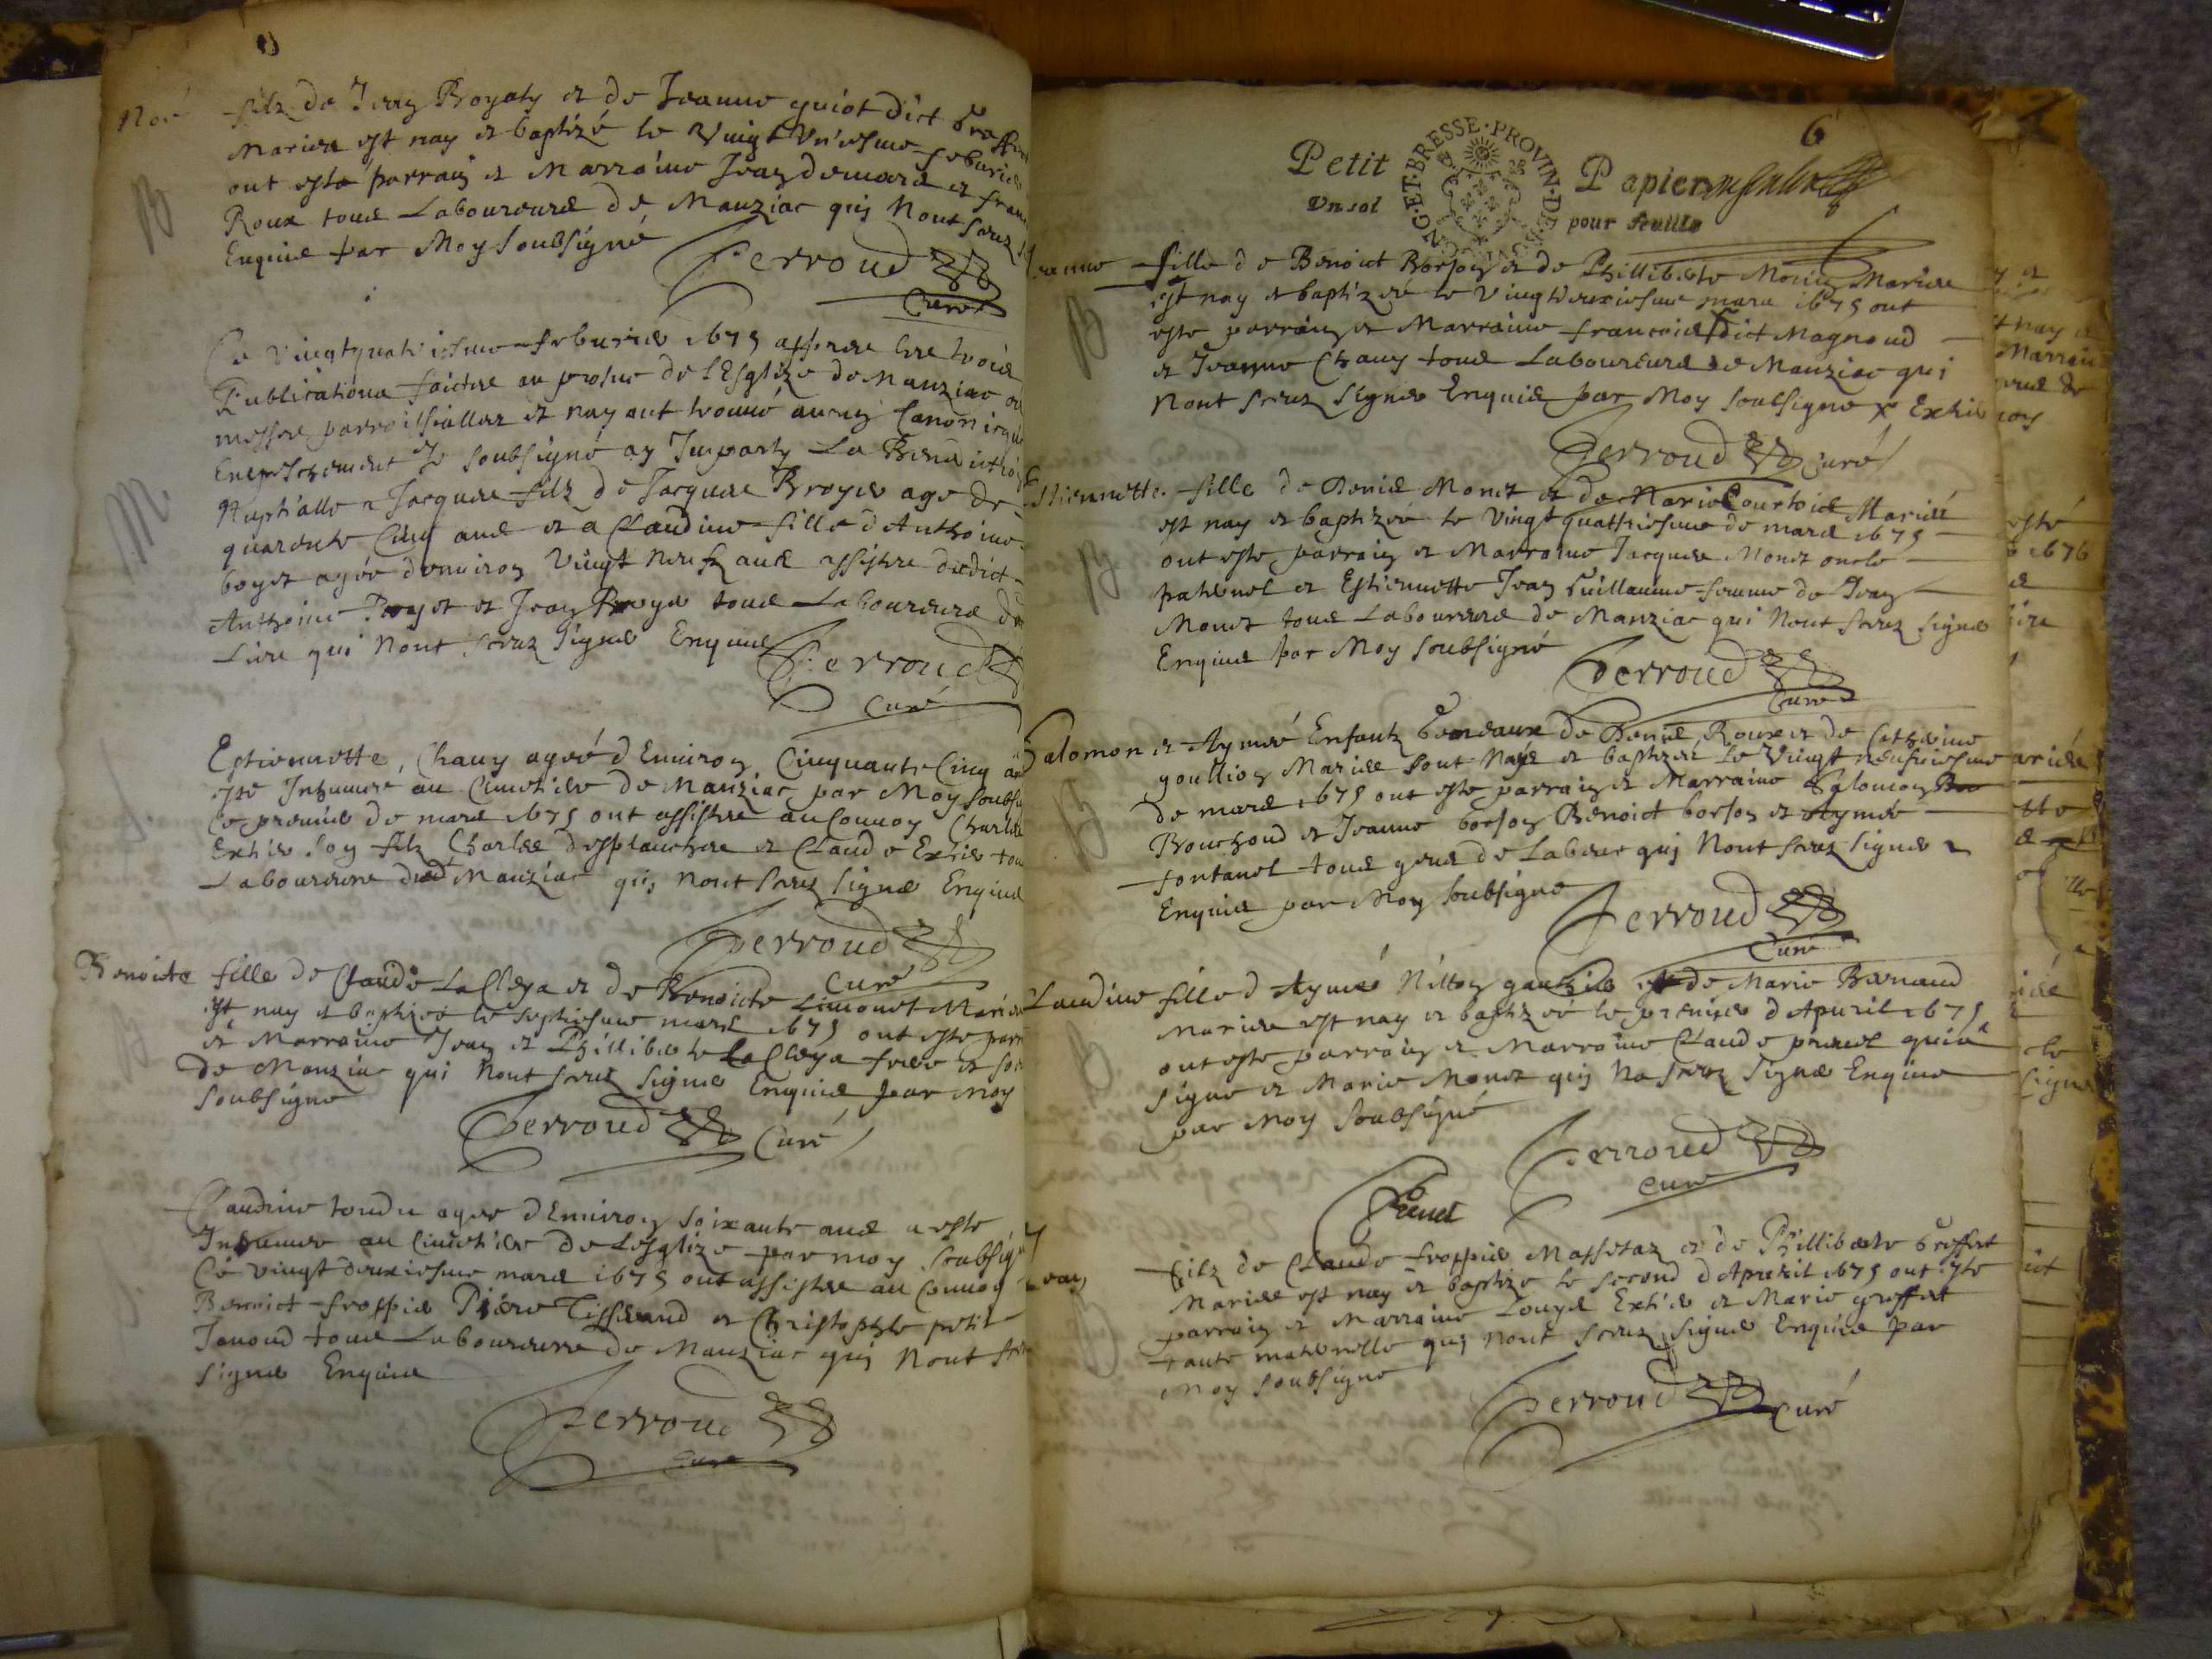 filz de Jean Broyaty et de Jeanne guiot dict
Mariez est nay et baptizé le Vingt Vn'iesme febvrier
ont esté parrain et Marraine Jean et
Roux tous Laboureurs de Manziac quj Nont sceuz
Enquis par Moy soubsigné
Perroud
Curé
Ce Vingtquatriesme febvrier 1675 appres les trois
Publications faictes au prosne de l'Esglize de Manziac
messes parroissialles et nayant trouué aucun Canonique
Empeschement Je soubsigné ay Imparty La Benediction
Nuptialle a Jacques filz de Jacques Broyer age de
quarente Cinq ans et a Claudine fille d'Anthoine
boyer agée denuiron Vingt Neuf ans assistes dudict
Anthoine et Jean Broyer tous Laboureurs de
Liure qui Nont sceuz signer Enquis
Perroud
Curé
Estiennette Chany agée d'Enuiron Cinquante Cinq
esté Inhumée au Cimetiere de Manziac par Moy
Ce premier de mars 1675 ont assistes au Conuoy Charles
Extier son filz Charles desplanches et Claude Extier
Laboureurs dud Manziac quj nont sceuz signer Enquis
Perroud
Curé
Benoicte fille de Claude LaCleya et de Benoicte Limonet Mariez
est nay et baptizée le septiesme mars 1675 ont esté
et Marraine Jean et Phillibete LaCleya frere et
de Manziac qui Nont sceuz signer Enquis par Moy
soubsigné
Perroud Curé
Claudine tondu agée d'Enuiron soixante ans a esté
Inhumée au Cimetiere de Lesglize par moy
Ce vingt deuxiesme mars 1675 ont assistes au Conuoy
Benoict froppier Piere Tisserand et Christophle petit
Janoud tous Laboureurs de Manziac quj Nont
signer Enquis
Perroud
Curé
6
Petit Papier
Vn sol pour feuille
BOVRG·ET·BRESSE·PROVIN·DE
fille de Benoict Borson et de Phillibete Mariez
est nay et baptizée le Vingtdeuxiesme mars 1675 ont
esté parrain et Marraine francois dict Magnoud
et Jeanne Chany tous Laboureurs de Manziac qui
Nont sceuz signer Enquis par Moy soubsigné
Perroud Curé
Estiennette fille de Denis Monet et de Marie Courtois Mariés
est nay et baptizée le Vingtquattriesme de mars 1675
ont esté parrain et Marraine Jacques Monet oncle
paternel et Estiennette Jean Guillaume femme de Jean
Monet tous Laboureurs de Manziac qui Nont sceuz signer
Enquis par Moy soubsigné
Perroud
Curé
Salomon et Aymée Enfants Gemeaux de Denis Roux et de Catherine
goullion Mariez sont Nays et baptizes le Vingt neufuiesme
de mars 1675 ont esté parrain et Marraine Salomon
Bouchoud et Jeanne borson Benoict borson et Aymée
fontanel tous gens de Labeur quj Nont sceuz signer
Enquis par Moy soubsigné
Perroud
Curé
Claudine fille d Aymé Nitton et de Marie Benaud
Mariez est nay et baptizée le premier d'Apuril 1675
ont esté parrain et Marraine Claude preuel quia
signé et Marie Monet quj Na sceuz signer Enquise
par Moy soubsigné
Perroud
Curé
Preuel
Jean
filz de Claude froppier Massetaz et de Phillibete Groffet
Mariez est nay et baptizé le second d'Apuril 1675 ont esté
parrain et Marraine Louys Extier et Marie groffet
tante maternelle quj nont sceuz signer Enquis par
Moy soubsigné
Perroud Curé